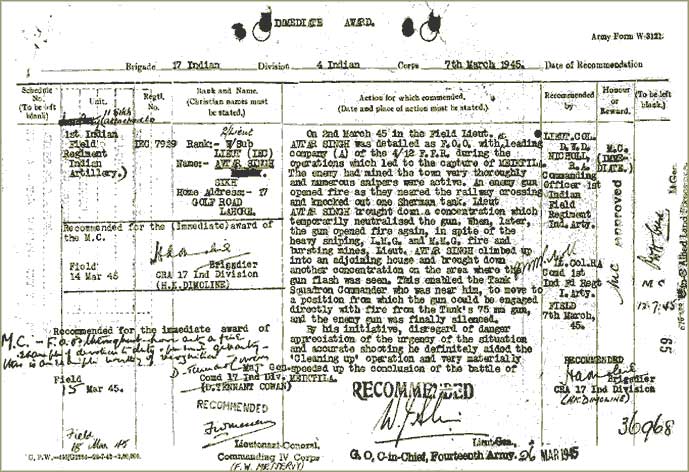 IMMEDIATE AWARD.
Army Form W-3121.
Brigade 17 Indian Division 4 Indian Corps 7th March 1945. Date of Recommendation
Schedule No. (To be left blank)
Unit.
Regtl. No.
Rank and Name. (Christian names must be stated.)
Action for which commended. (Date and place of action must be stated.)
Recommended by
Honour or Reward.
(To be left blank.)
1st Indian
Field
Regiment
Indian
Artillery.)
IEC 7939
2/Lieut
Rank:- W/Sub
LIEUT (IEC)
Name:- AVTAR SINGH
SIKH
Home Address:- 17
GOLF ROAD
LAHORE.
On 2nd March 45 in the Field Lieut.
AVTAR SINGH was detailed as F.O.O. with leading
company (A) of the 4/12 F.F.R. during the
operations which led to the capture of MEIKTILA.
The enemy had mined the town very thoroughly
and numerous snipers were active. An enemy gun
opened fire as they neared the railway crossing
and knocked out one Sherman tank. Lieut
AVTAR SINGH brought down a concentration which
temporarily neutralised the gun. When, later,
the gun opened fire again, in spite of the
heavy sniping, L.M.G. and M.M.G. fire and
bursting mines, Lieut. AVTAR SINGH climbed up
into an adjoining house and brought down
another concentration on the area where the
gun flash was seen. This enabled the Tank
Squadron Commander who was near him, to move to
a position from which the gun could be engaged
directly with fire from the Tank's 75 mm gun,
and the enemy gun was finally silenced.
By his initiative, disregard of danger
appreciation of the urgency of the situation
and accurate shooting he definitely aided the
'Cleaning up' operation and very materially
speeded up the conclusion of the battle of
MEIKTILA.
LIEUT.COL.
NICHOLL,
R.A.
Commanding
Officer 1st
Indian
Field
Regiment
Ind. Arty.
Lt.Col.RA
Comd 1st
Ind Fd Regt
I. Arty.
FIELD
7th March,
45.
M.C.
(IMME-
DIATE.)
MC Approved
12.7.45
65
Recommended for the (Immediate) award of
the M.C.
Field
14 Mar 45
Brigadier
CRA 17 Ind Division
(H.K.DIMOLINE)
Recommended for the immediate award of
M.C.
Maj Gen.
Comd 17 Ind Div.
(D.TENNANT COWAN)
Field
15 Mar 45.
RECOMMENDED
Lieutenant-General,
Commanding IV Corps
(F.W. MESSERVY)
Field
18 Mar 45
RECOMMENDED
Lieut-Gen.
G. O, C-in-Chief, Fourteenth Army. 26 MAR 1945
RECOMMENDED
Brigadier
CRA 17 Ind Division
(H.K.DIMOLINE)
36968